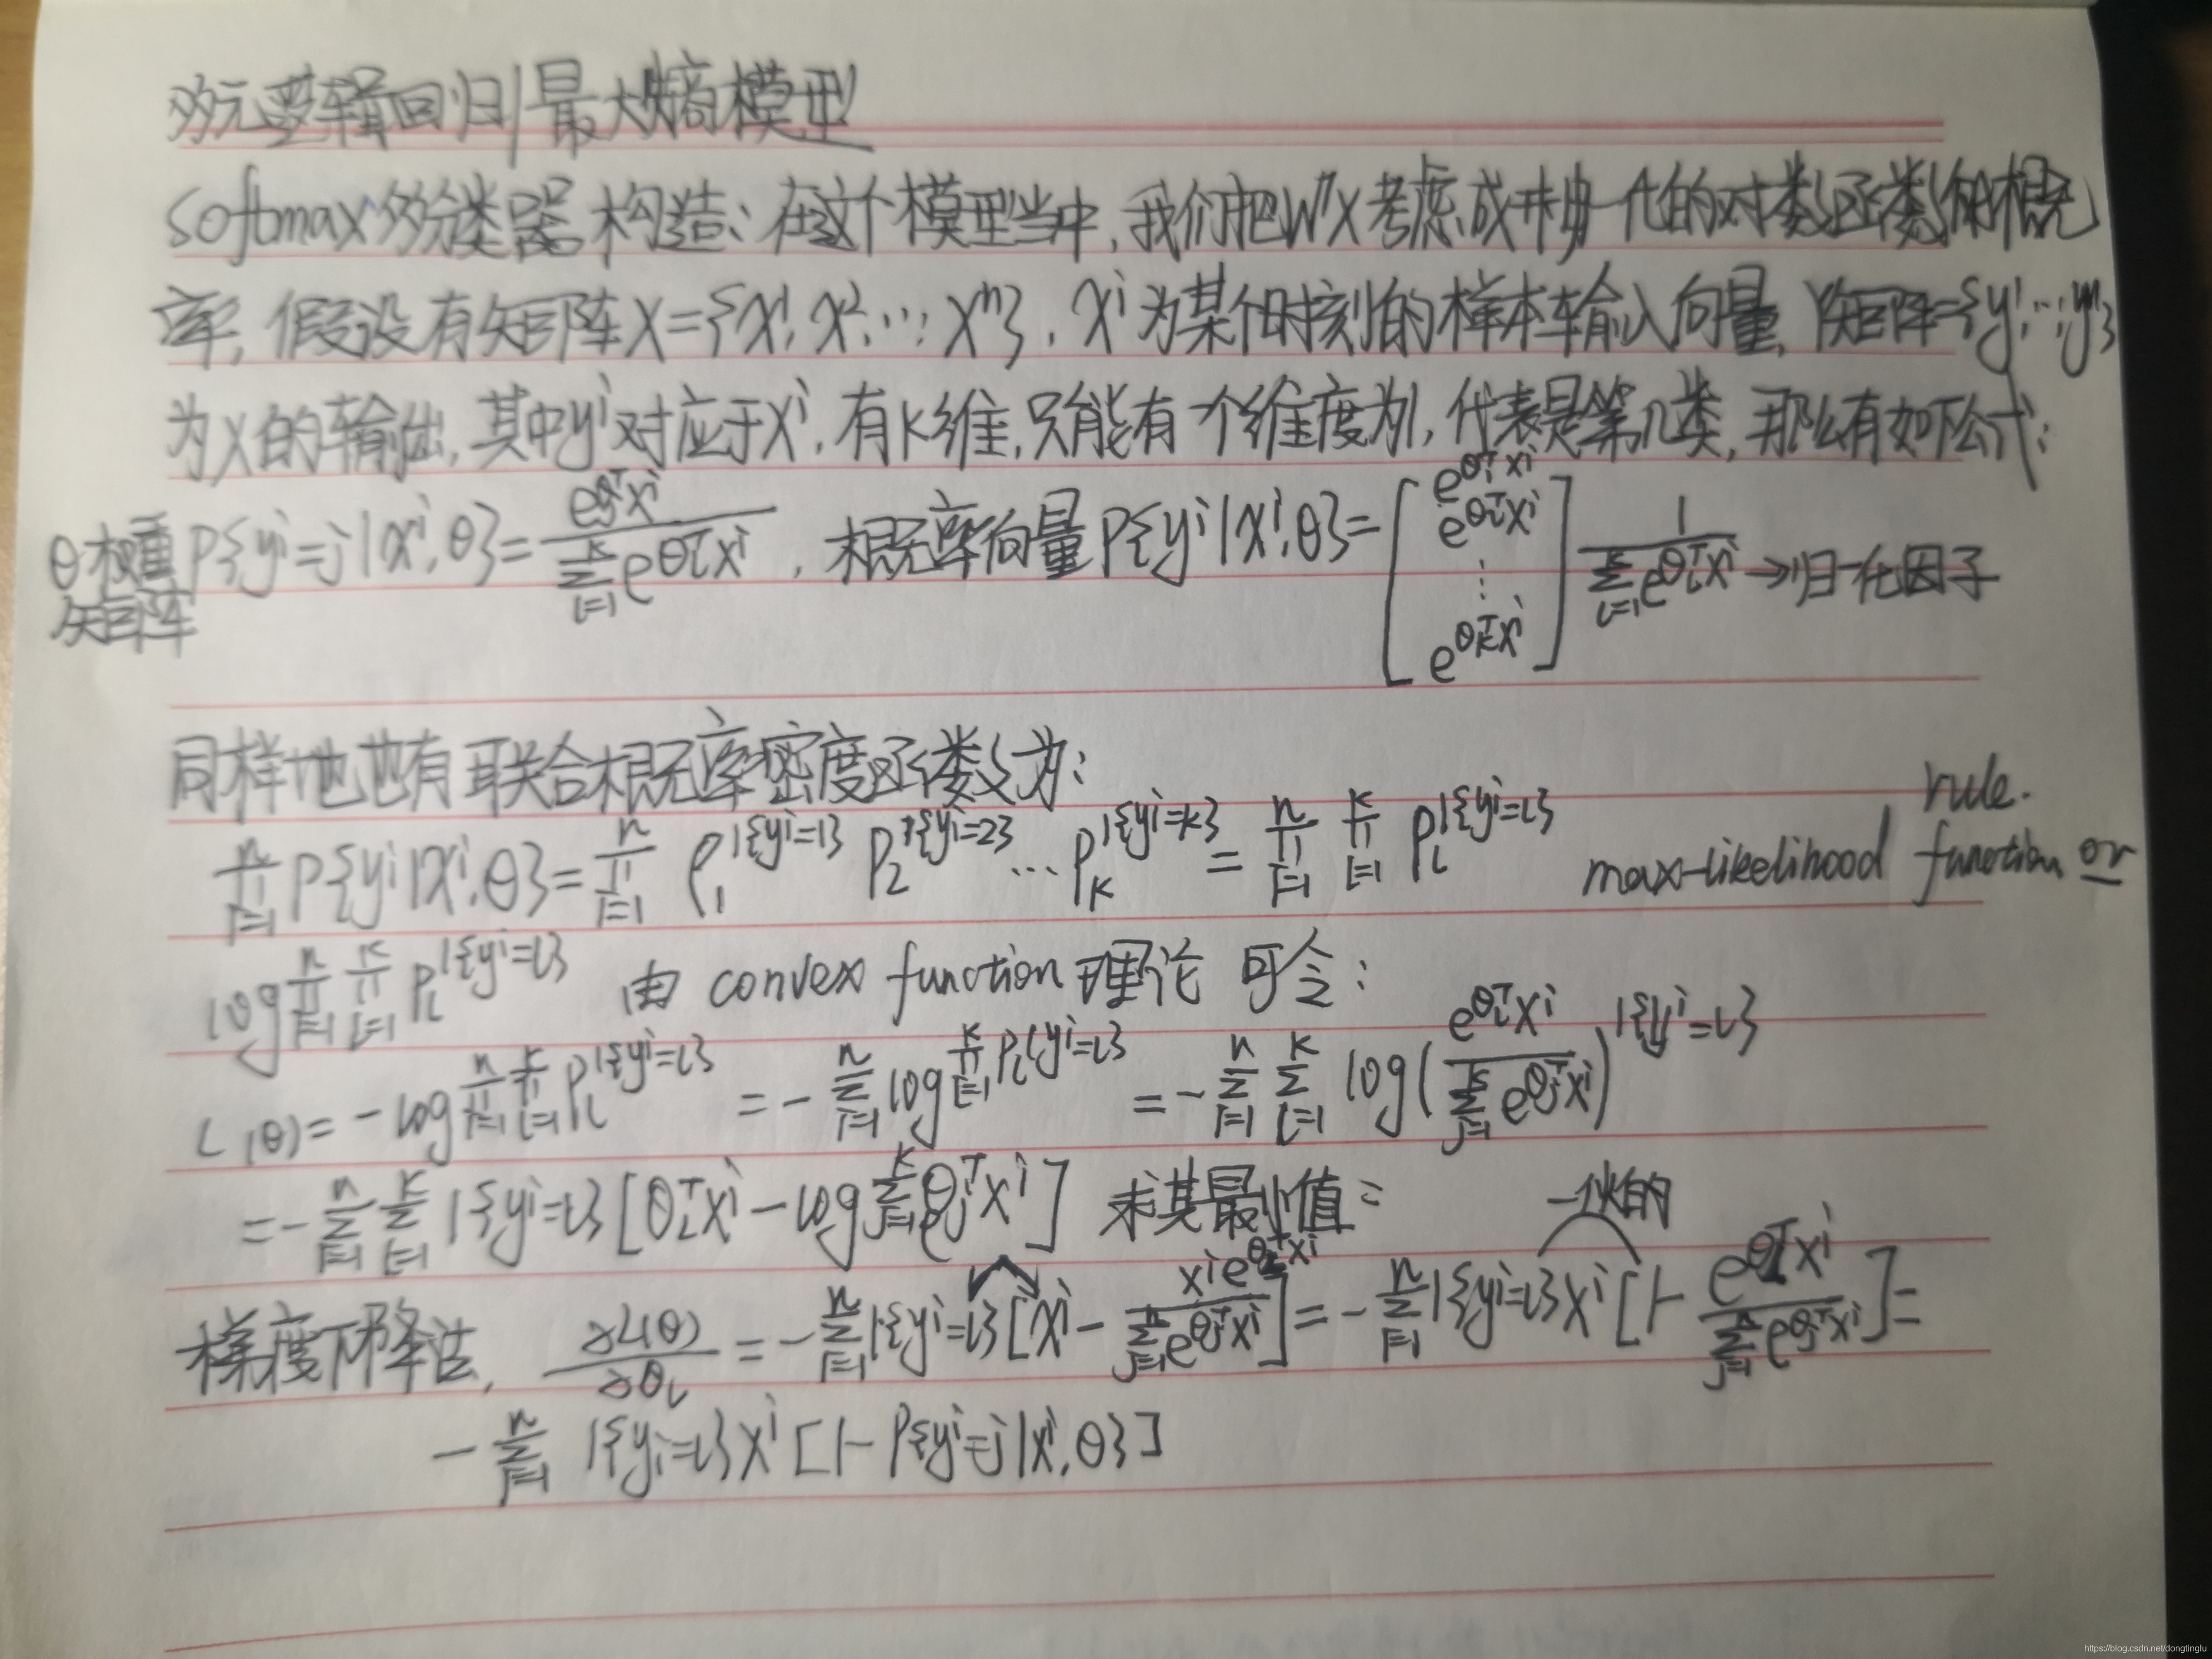 多元逻辑回归|最大熵模型
softmax多分类器构造:在这个模型当中,我们把WᵀX考虑成非归一化的对数函数的概
率,假设有矩阵X={x¹,x²,...,xⁿ},xⁱ为某个时刻的样本输入向量,Y矩阵={y¹,...,yⁿ}
为X的输出,其中yⁱ对应于xⁱ,有k维,只能有一个维度为1,代表是第几类,那么有如下公式:
θ权重矩阵 P{yⁱ=j|xⁱ,θ}=e^{θⱼᵀxⁱ}/∑_{l=1}^{k}e^{θₗᵀxⁱ},概率向量P{yⁱ|xⁱ,θ}=[e^{θ₁ᵀxⁱ} e^{θ₂ᵀxⁱ} ⋮ e^{θₖᵀxⁱ}] 1/∑_{l=1}^{k}e^{θₗᵀxⁱ}→归一化因子
同样地也有联合概率密度函数为:
∏_{i=1}^{n}P{yⁱ|xⁱ,θ}=∏_{i=1}^{n} P₁^{1{yⁱ=1}} P₂^{1{yⁱ=2}}...Pₖ^{1{yⁱ=k}}=∏_{i=1}^{n}∏_{l=1}^{k}Pₗ^{1{yⁱ=l}} max-likelihood function or
rule.
log∏_{i=1}^{n}∏_{l=1}^{k}Pₗ^{1{yⁱ=l}} 由 convex function理论 可令:
L(θ)=-log∏_{i=1}^{n}∏_{l=1}^{k}Pₗ^{1{yⁱ=l}}=-∑_{i=1}^{n}log∏_{l=1}^{k}Pₗ^{1{yⁱ=l}}=-∑_{i=1}^{n}∑_{l=1}^{k}log(e^{θₗᵀxⁱ}/∑_{j=1}^{k}e^{θⱼᵀxⁱ})^{1{yⁱ=l}}
=-∑_{i=1}^{n}∑_{l=1}^{k}1{yⁱ=l}[θₗᵀxⁱ-log∑_{j=1}^{k}e^{θⱼᵀxⁱ}] 求其最小值:
一伙的
梯度下降法,∂L(θ)/∂θₗ=-∑_{i=1}^{n}1{yⁱ=l}[xⁱ-xⁱe^{θₗᵀxⁱ}/∑_{j=1}^{k}e^{θⱼᵀxⁱ}]=-∑_{i=1}^{n}1{yⁱ=l}xⁱ[1-e^{θₗᵀxⁱ}/∑_{j=1}^{k}e^{θⱼᵀxⁱ}]=
-∑_{i=1}^{n}1{yᵢ=l}xⁱ[1-P{yⁱ=j|xⁱ,θ}]
https://blog.csdn.net/dongtinglu